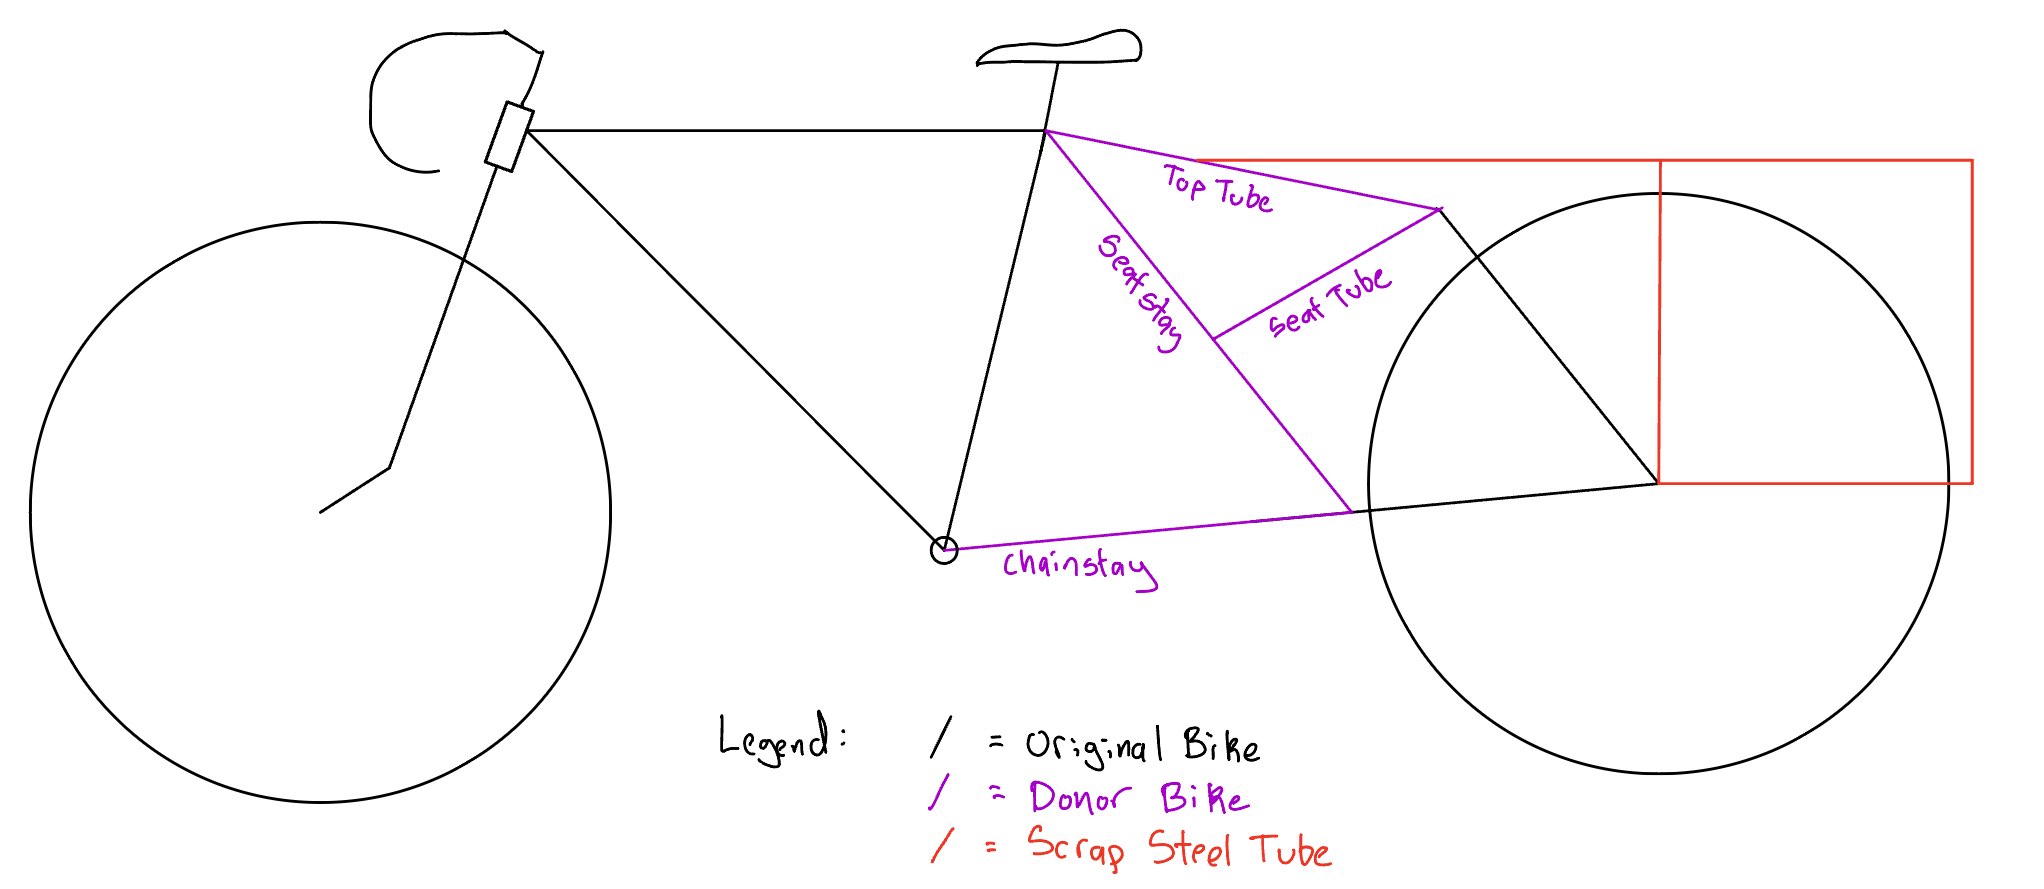 Top Tube
Seatstay
Seat Tube
Chainstay
Legend: / = Original Bike
/ = Donor Bike
/ = Scrap Steel Tube